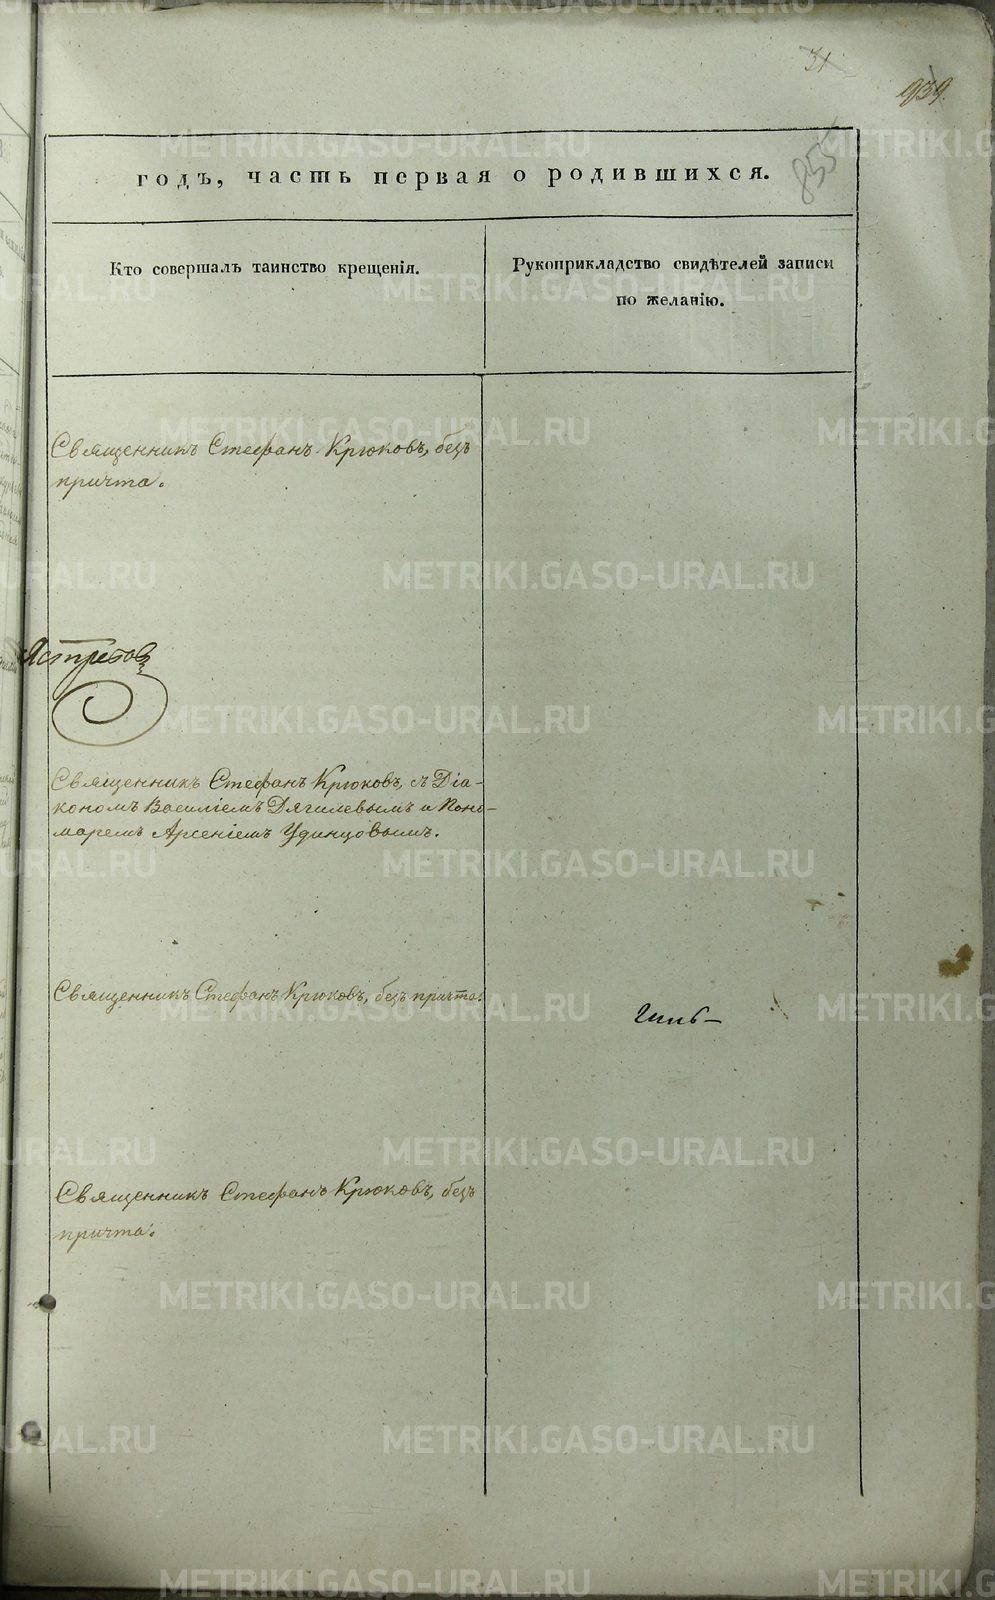 31
939.
855
годъ, часть первая о родившихся.
Кто совершалъ таинство крещенія.
Рукоприкладство свидѣтелей записи
по желанію.
Священникъ Стефанъ Крюковъ, безъ
причта.
Ястребов
Священникъ Стефанъ Крюковъ, съ Діа-
кономъ Василіемъ Дягилевымъ и Поно-
маремъ Арсеніемъ Удинцовымъ.
Священникъ Стефанъ Крюковъ, безъ причта.
Священникъ Стефанъ Крюковъ, безъ
причта.
METRIKI.GASO-URAL.RU